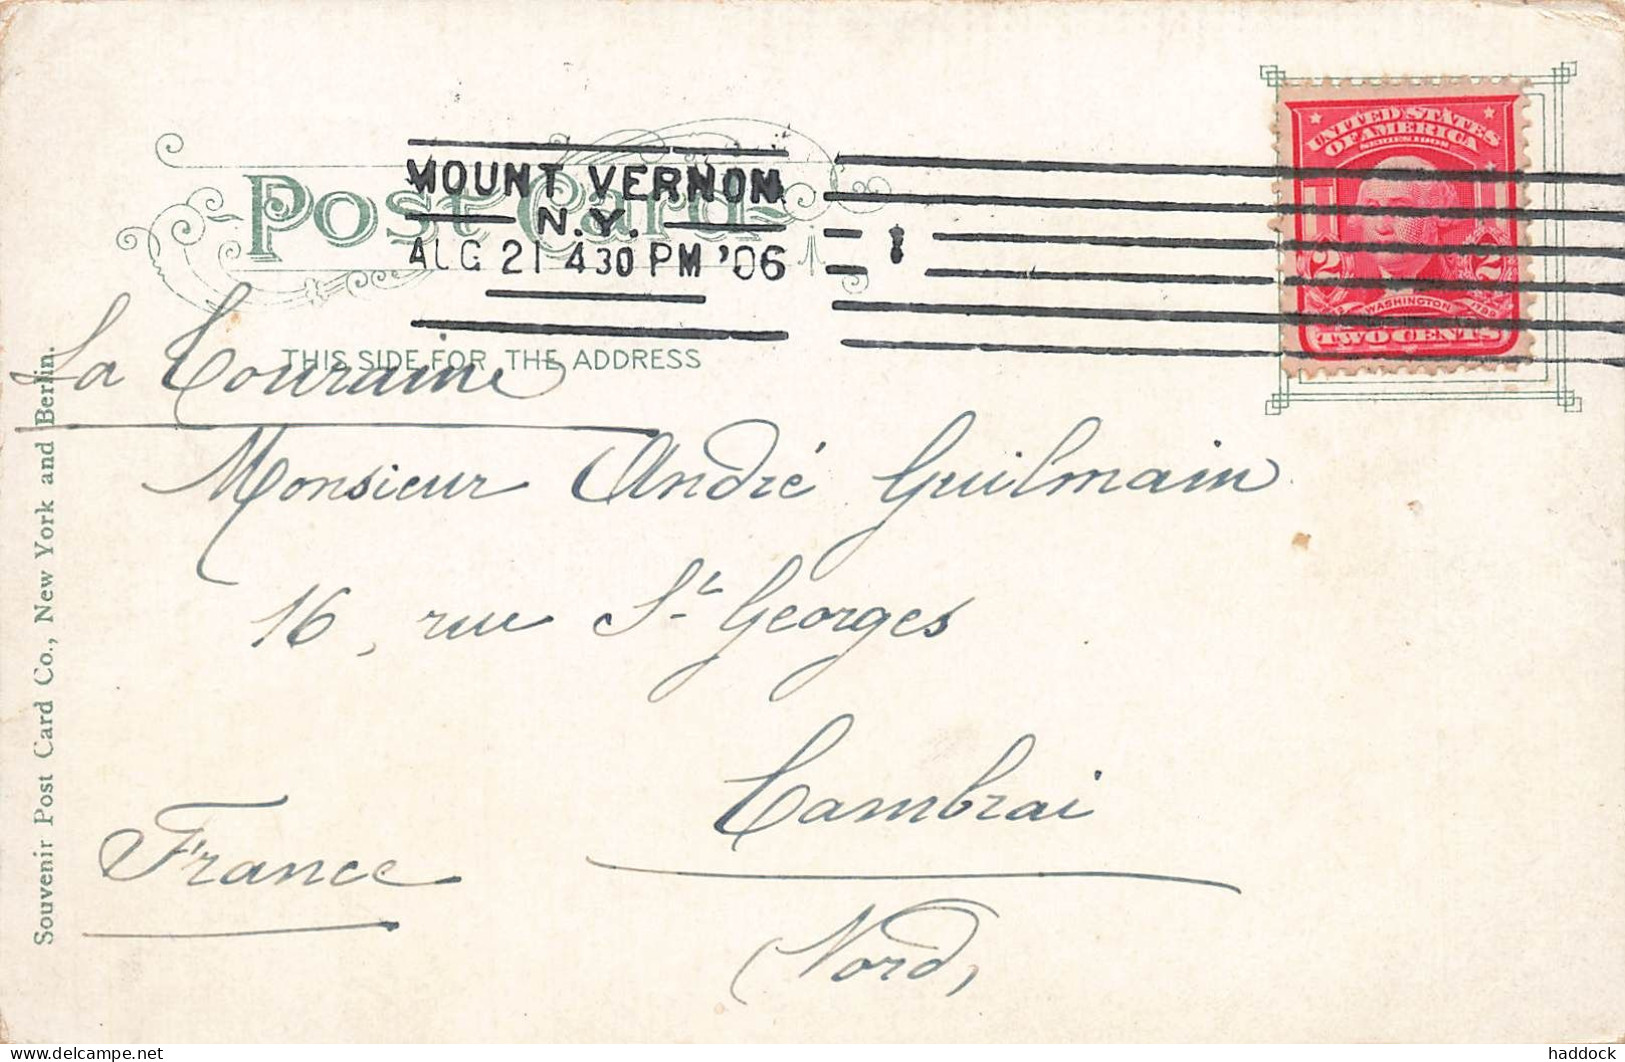 Post Card
MOUNT VERNON
N.Y.
AUG 21 430 PM '06
1
UNITED STATES
OF AMERICA
SERIES 1902
2 2
WASHINGTON
TWO CENTS
THIS SIDE FOR THE ADDRESS
La Touraine
Monsieur André Guilmain
16, rue St Georges
Cambrai
France
(Nord)
Souvenir Post Card Co., New York and Berlin.
delcampe.net
haddock